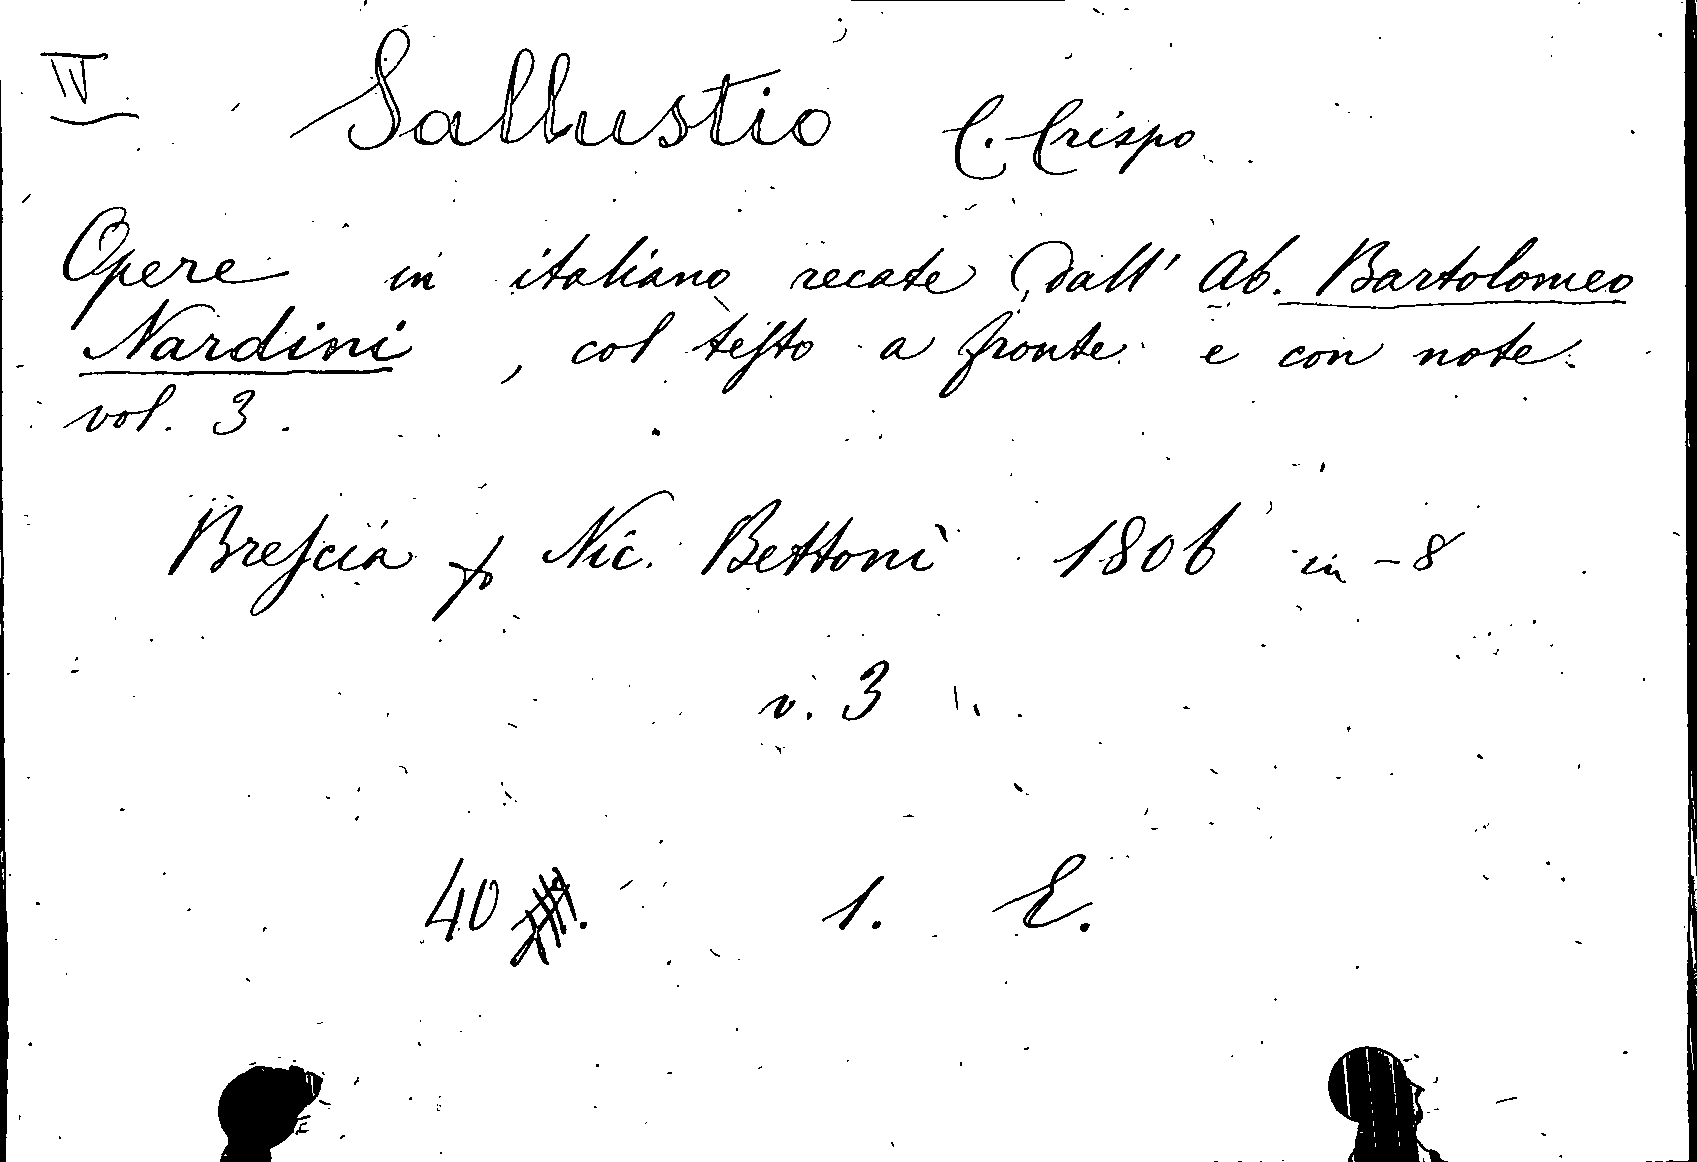 IV Sallustio C. Crispo
Opere in italiano recate dall' Ab. Bartolomeo
Nardini , col testo a fronte e con note.
vol. 3.
Brescia p Nic. Bettoni 1806 in -8
v. 3
40 1. E.